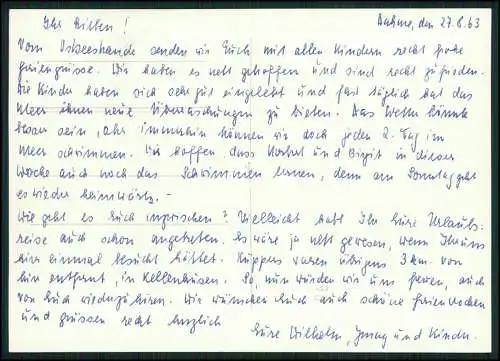 Dahme, den 27.8.63
Ihr Lieben!
Vom Ostseestrande senden wir Euch mit allen Kindern recht frohe
Feriengrüsse. Wir haben es nett getroffen und sind recht zufrieden.
Die Kinder haben sich sehr gut eingelebt und fast täglich hat das
Meer ihnen neue Überraschungen zu bieten. Das Wetter könnte
besser sein, aber immerhin können wir doch jeden 2. Tag im
Meer schwimmen. Wir hoffen, dass Norbert und Birgit in dieser
Woche auch noch das Schwimmen lernen, denn am Sonntag geht
es wieder heimwärts. –
Wie geht es Euch inzwischen? Vielleicht habt Ihr Eure Urlaubs-
reise auch schon angetreten. Es wäre ja nett gewesen, wenn Ihr uns
hier einmal besucht hättet. Küppers waren übrigens 3 km. von
hier entfernt, in Kellenhusen. So, nun würden wir uns freuen, auch
von Euch wiederzuhören. Wir wünschen Euch auch schöne Ferienwochen
und grüssen recht herzlich
Eure Wilhelm, und Kinder.